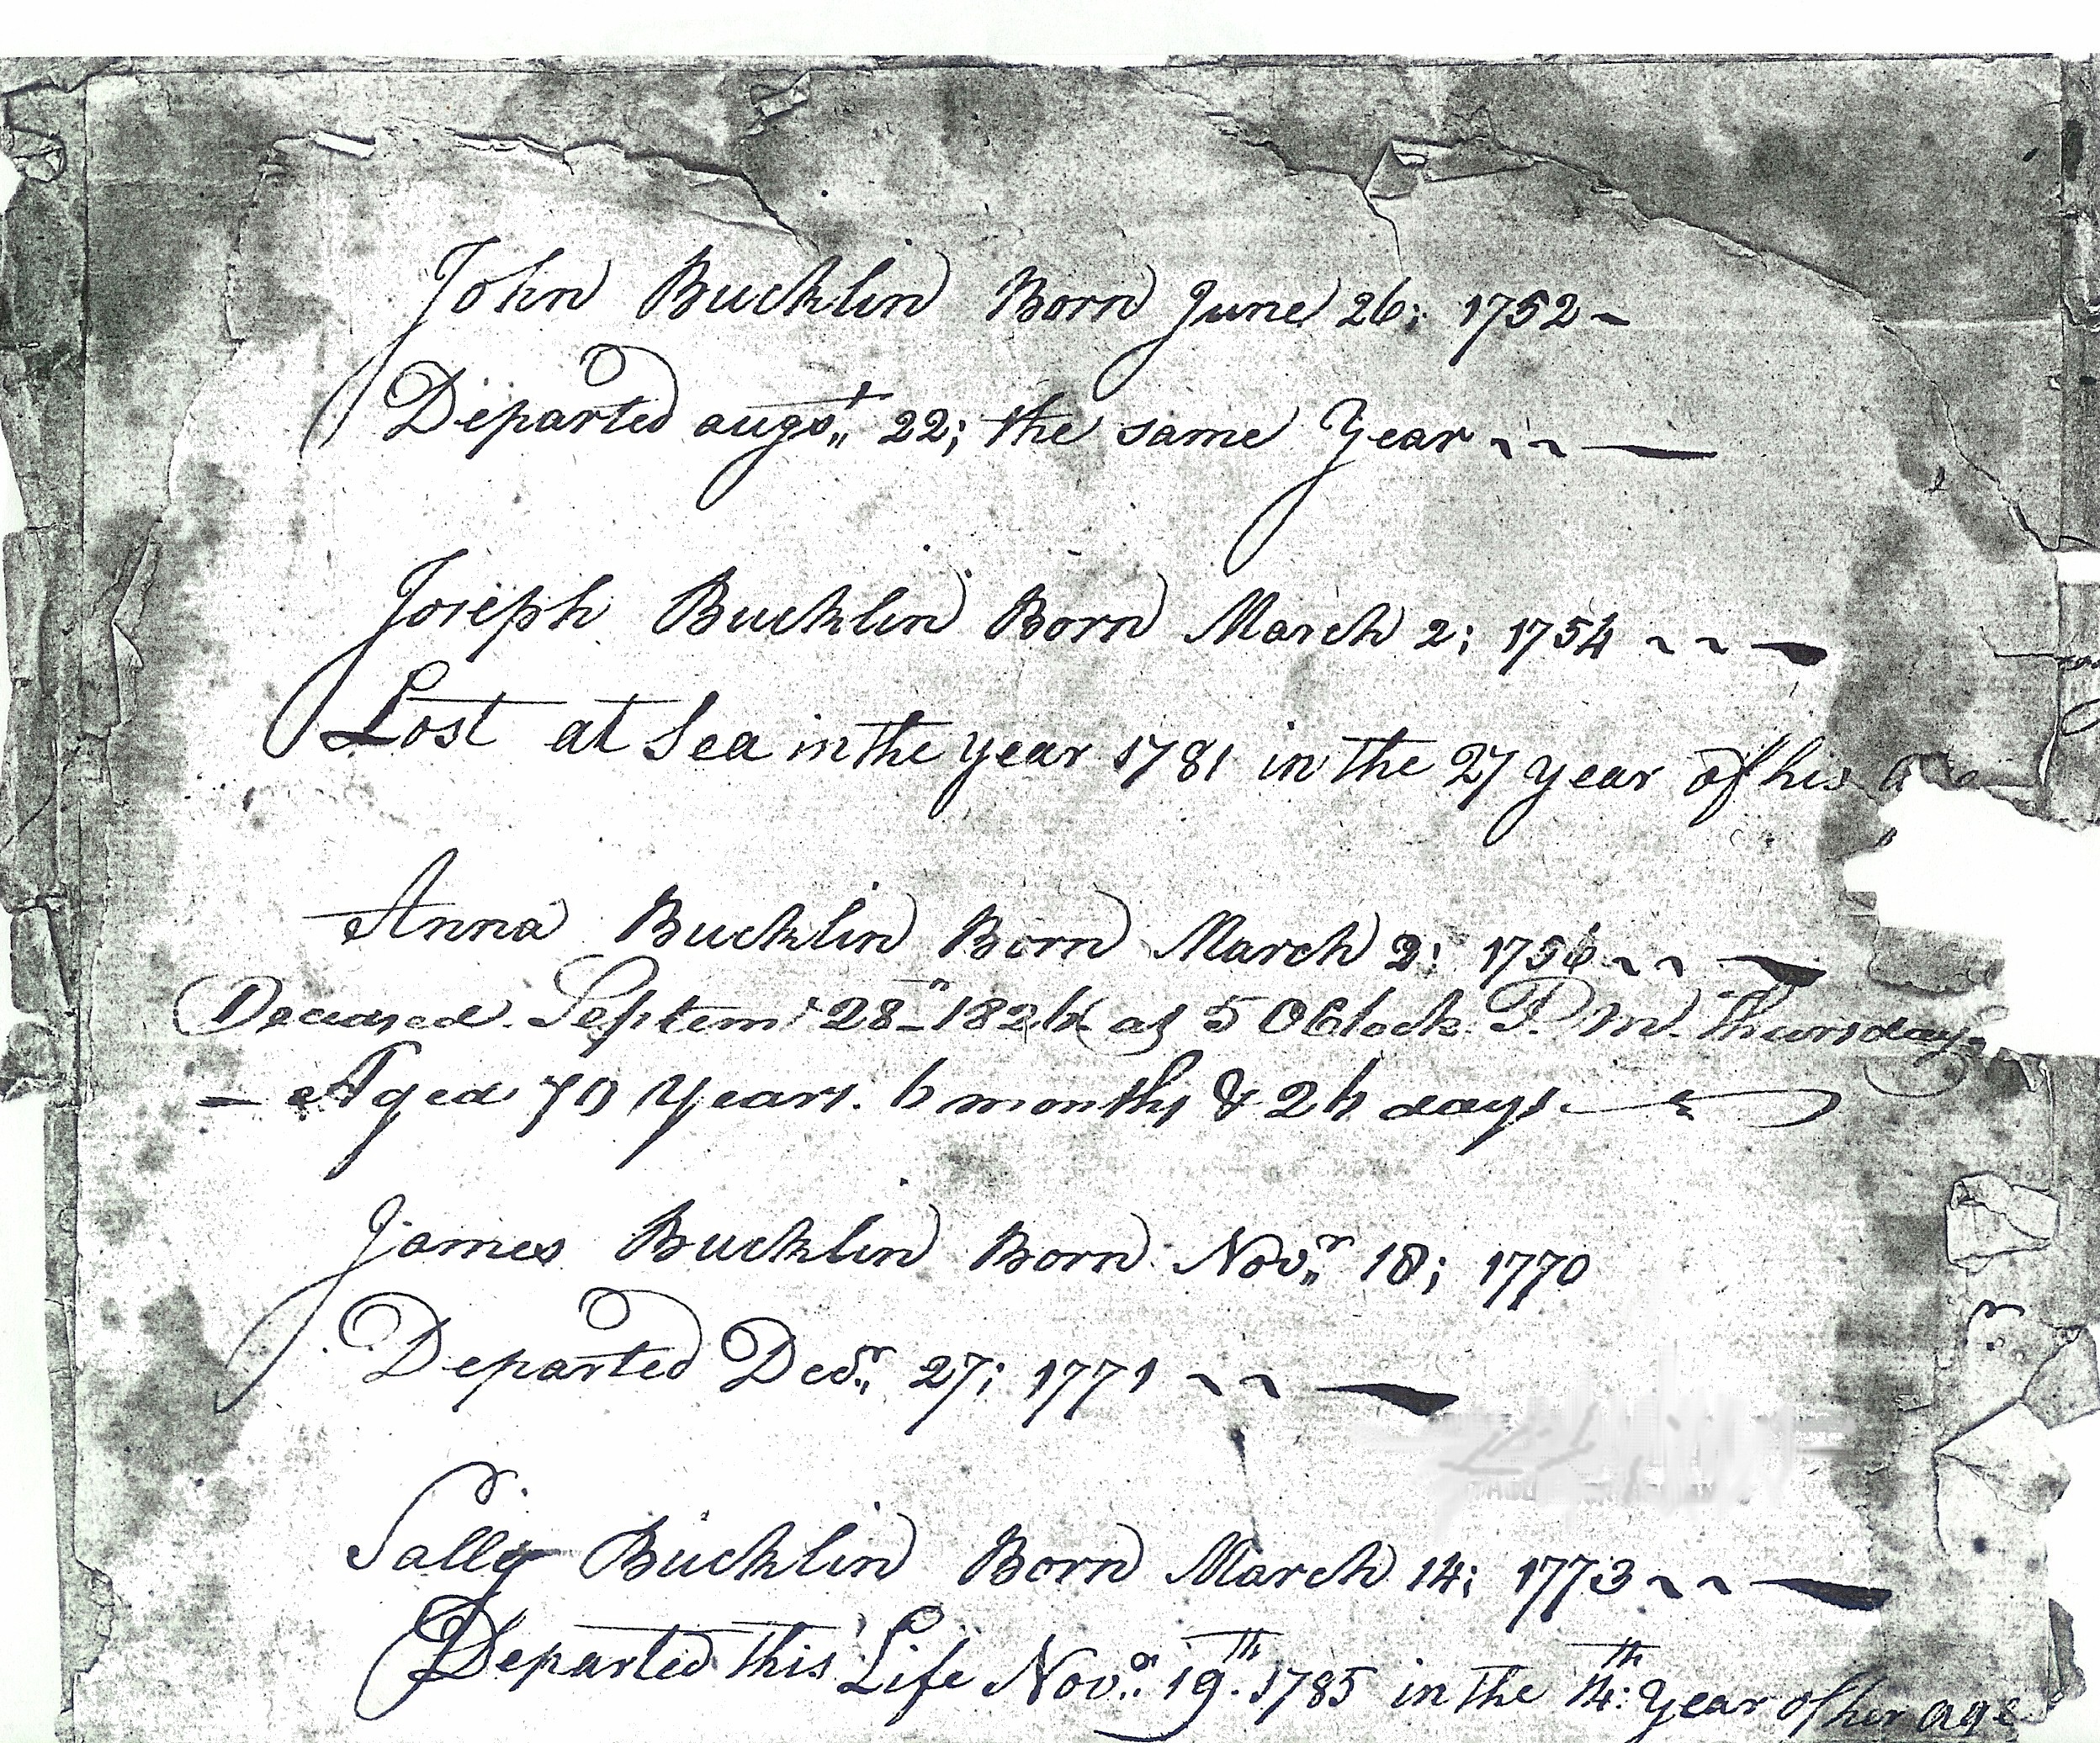 John Bucklin Born June 26; 1752 ~
Departed augst,, 22; the same Year ~ ~ —
Joseph Bucklin Born March 2; 1754 ~ ~ —
Lost at Sea in the year 1781 in the 27 year of his age
Anna Bucklin Born March 2; 1756 ~ ~ —
Deceased. Septemr 28th 1826 at 5 OClock P. M. Thursday.
— Aged 70 Years. 6 months & 26 days.
James Bucklin Born Novr,, 18; 1770
Departed Decr,, 27; 1771 ~ ~ —
Sally Bucklin Born March 14; 1773 ~ ~ —
Departed this Life Novr.. 19th. 1785 in the 14th: Year of her age